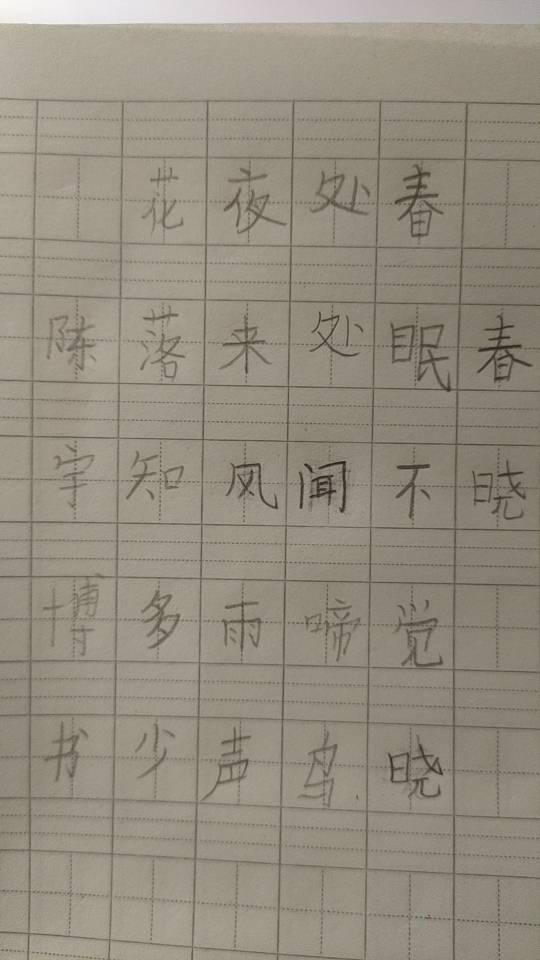 春晓
春眠不觉晓
处处闻啼鸟
夜来风雨声
花落知多少
陈宇博书